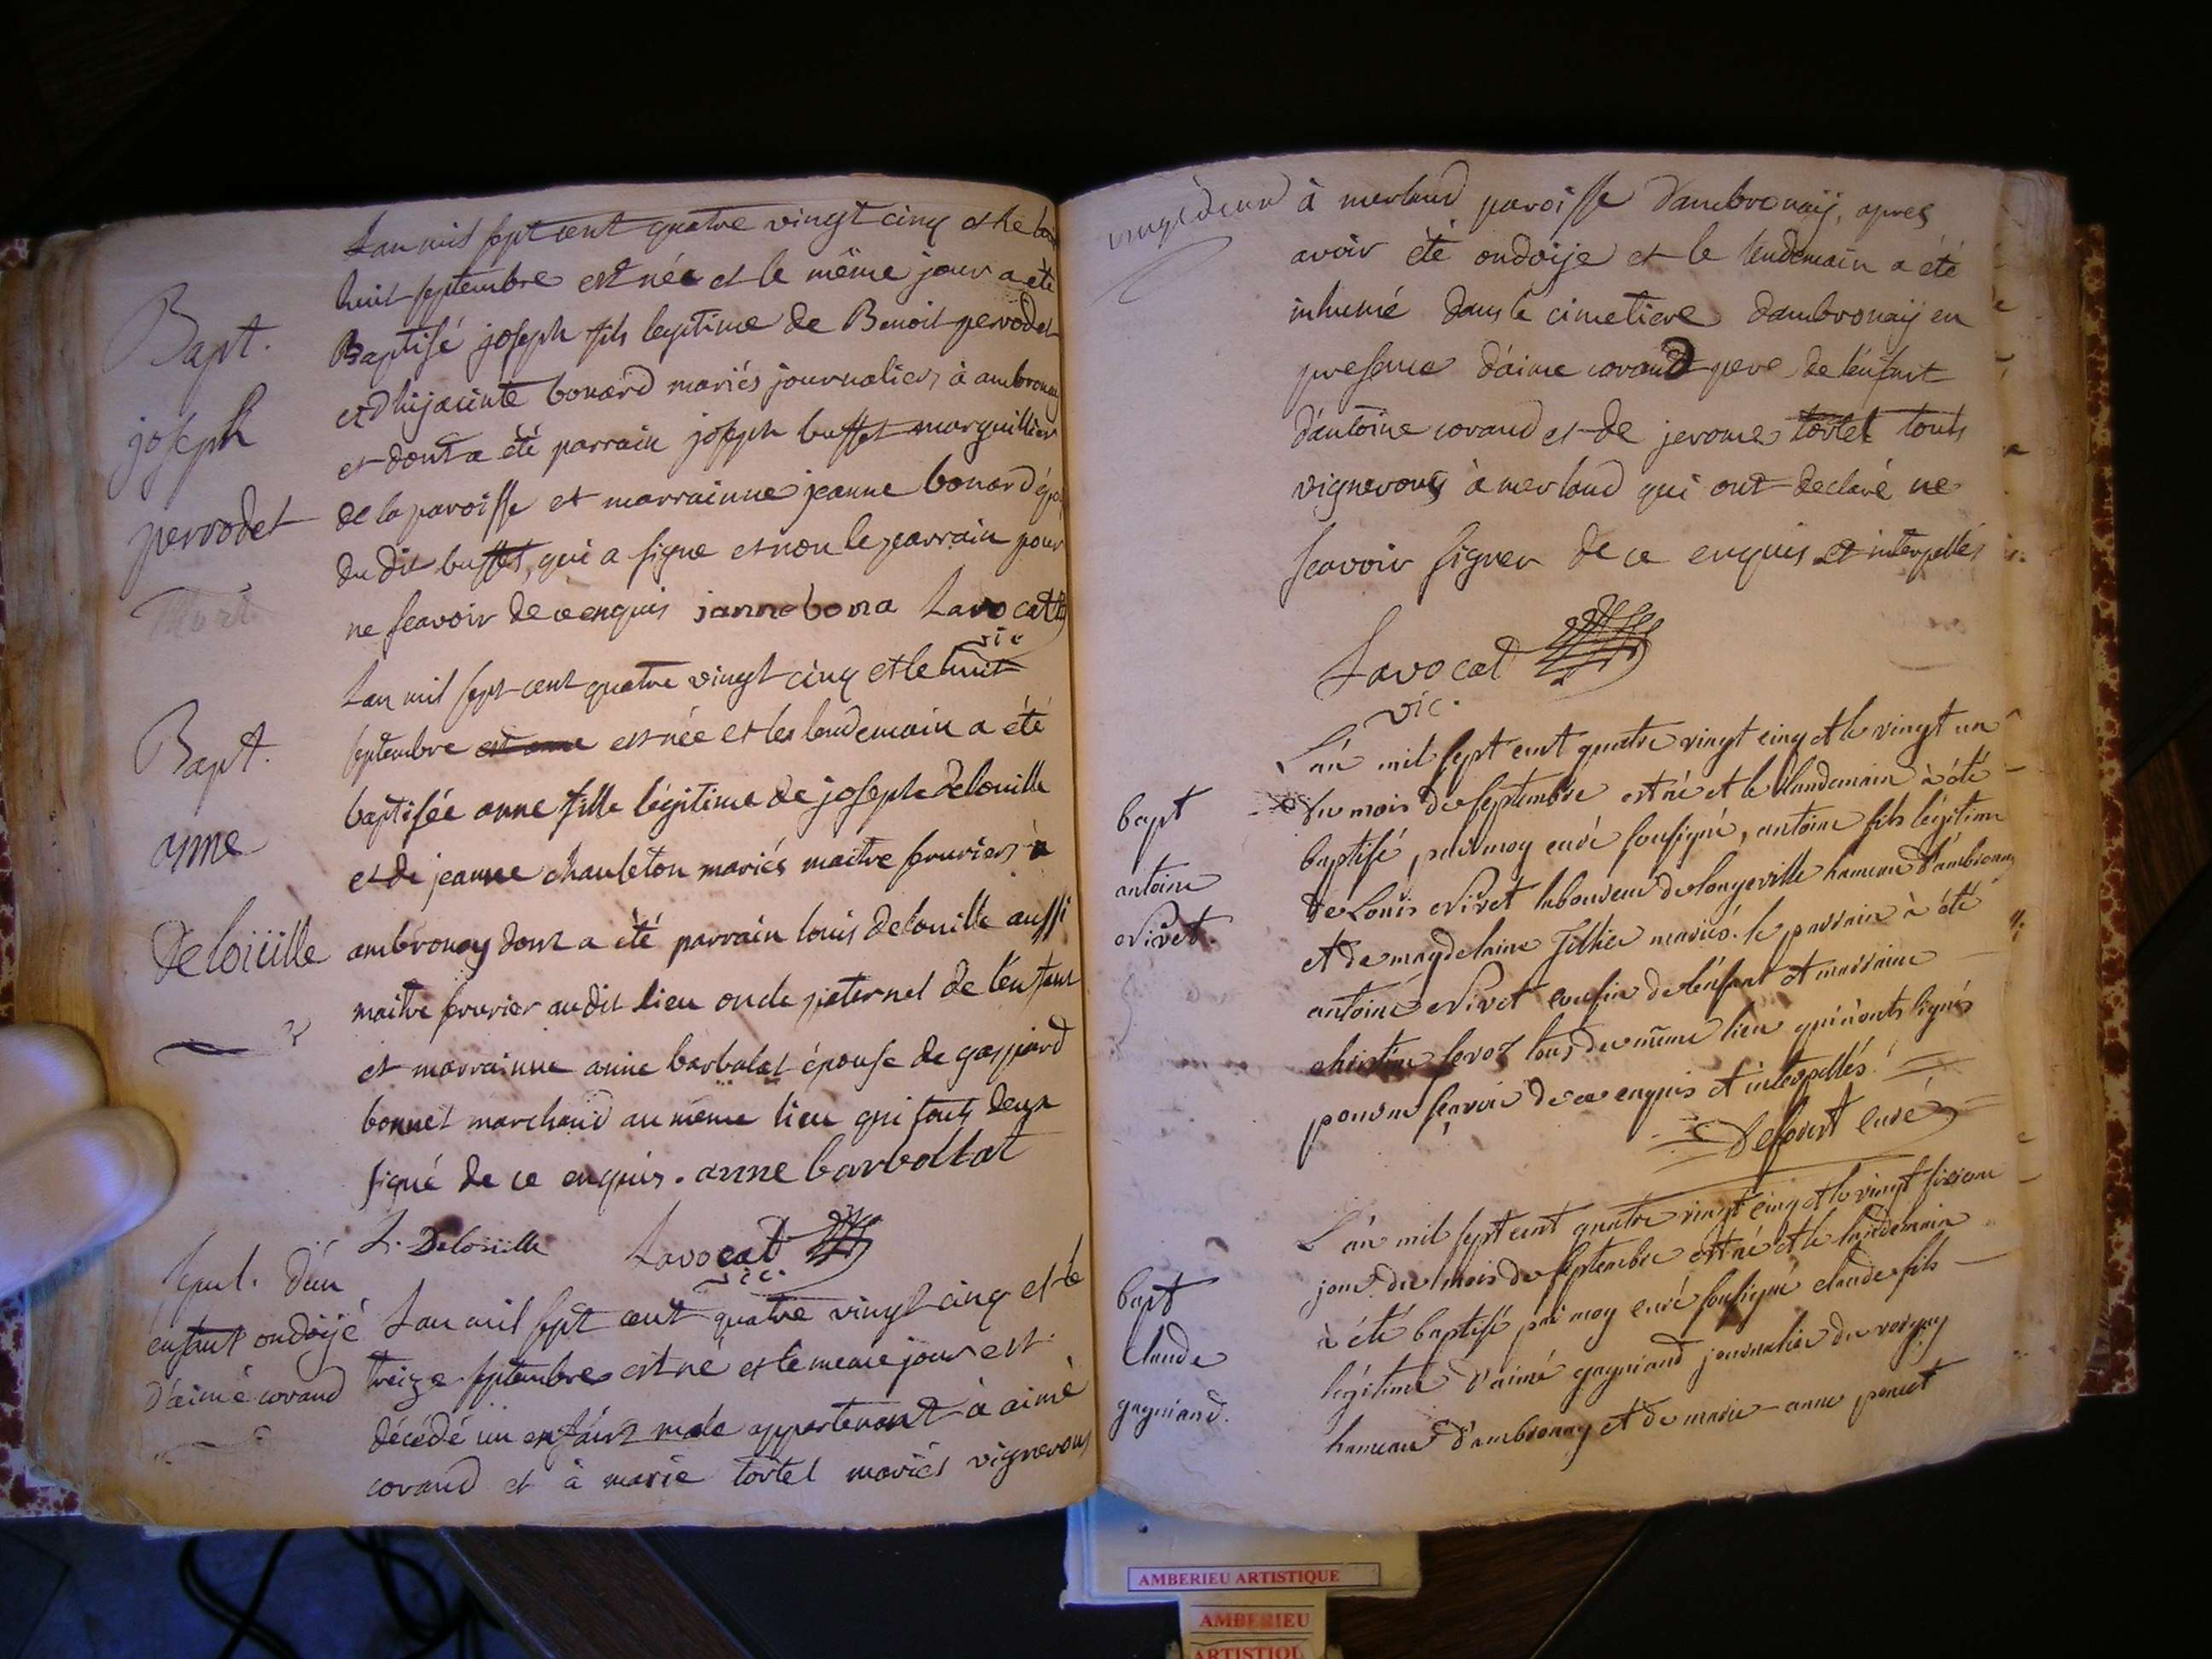 Lan mil sept cent quatre vingt cinq et le
huit septembre est née et le même jour a été
Baptisé joseph fils legitime de Benoit perrodet
et d'hijacinte bonard mariés journaliers à ambronay
et dont a été parrain joseph buffet marguillier
de la paroisse et marrainne jeanne bonard
du dit buffet, qui a signe et non le parrain pour
ne scavoir de ce enquis janne bona Lavocat
vic
Bapt.
joseph
perrodet
Mort
Lan mil sept cent quatre vingt cinq et le huit
septembre est anne est née et les lendemain a été
baptisée anne fille légitime de joseph delouille
et de jeanne chanleton mariés maitre serruriers à
ambronay dont a été parrain louis delouille aussi
maitre serrurier au dit lieu oncle paternel de l'enfant
et marrainne anne barbolat épouse de gaspard
bonnet marchand au même lieu qui touts deux
signé de ce enquis. anne barbollat
L. Deloüille Lavocat
vic.
Bapt.
anne
Deloüille
Sepul. d'un
enfant ondoijé
d'aimé corand
Lan mil sept cent quatre vingt cinq et le
treize septembre est né et le meme jour est
décédé un enfant male appartenant à aimé
corand et à marie tortel mariés vignerons
à merland paroisse dambronaij, apres
avoir été ondoije et le lendemain a été
inhumé dans le cimetiere dambronaij en
presence d'aime corand pere de l'enfant
d'antoine corand et de jerome tortel touts
vignerons à merland qui ont declaré ne
scavoir signer de ce enquis et interpellés
Lavocat
vic.
bapt
antoine
nivet.
L'an mil sept cent quatre vingt cinq et le vingt un
du mois de septembre est né et le landemain à été
baptisé, par moy curé sousigné, antoine fils légitime
de Louis nivet laboureur de longeville hameau d'ambronay
et de magdelaine Tillier mariés. le parrain à été
antoine nivet cousin de l'enfant et marraine
christine levoz tous du même lieu qui n'onts signés
pour ne sçavoir de ce enquis et interpellés
Defovert curé
bapt
Claude
gagniand.
L'an mil sept cent quatre vingt cinq et le vingt sixieme
jour du mois de septembre est né et le landemain
à été baptisé par moy curé sousigné claude fils
légitime d'aimé gagniand journalier du vorgey
hameau d'ambronay et de marie-anne poncet
AMBERIEU ARTISTIQUE
AMBERIEU
ARTISTIQU